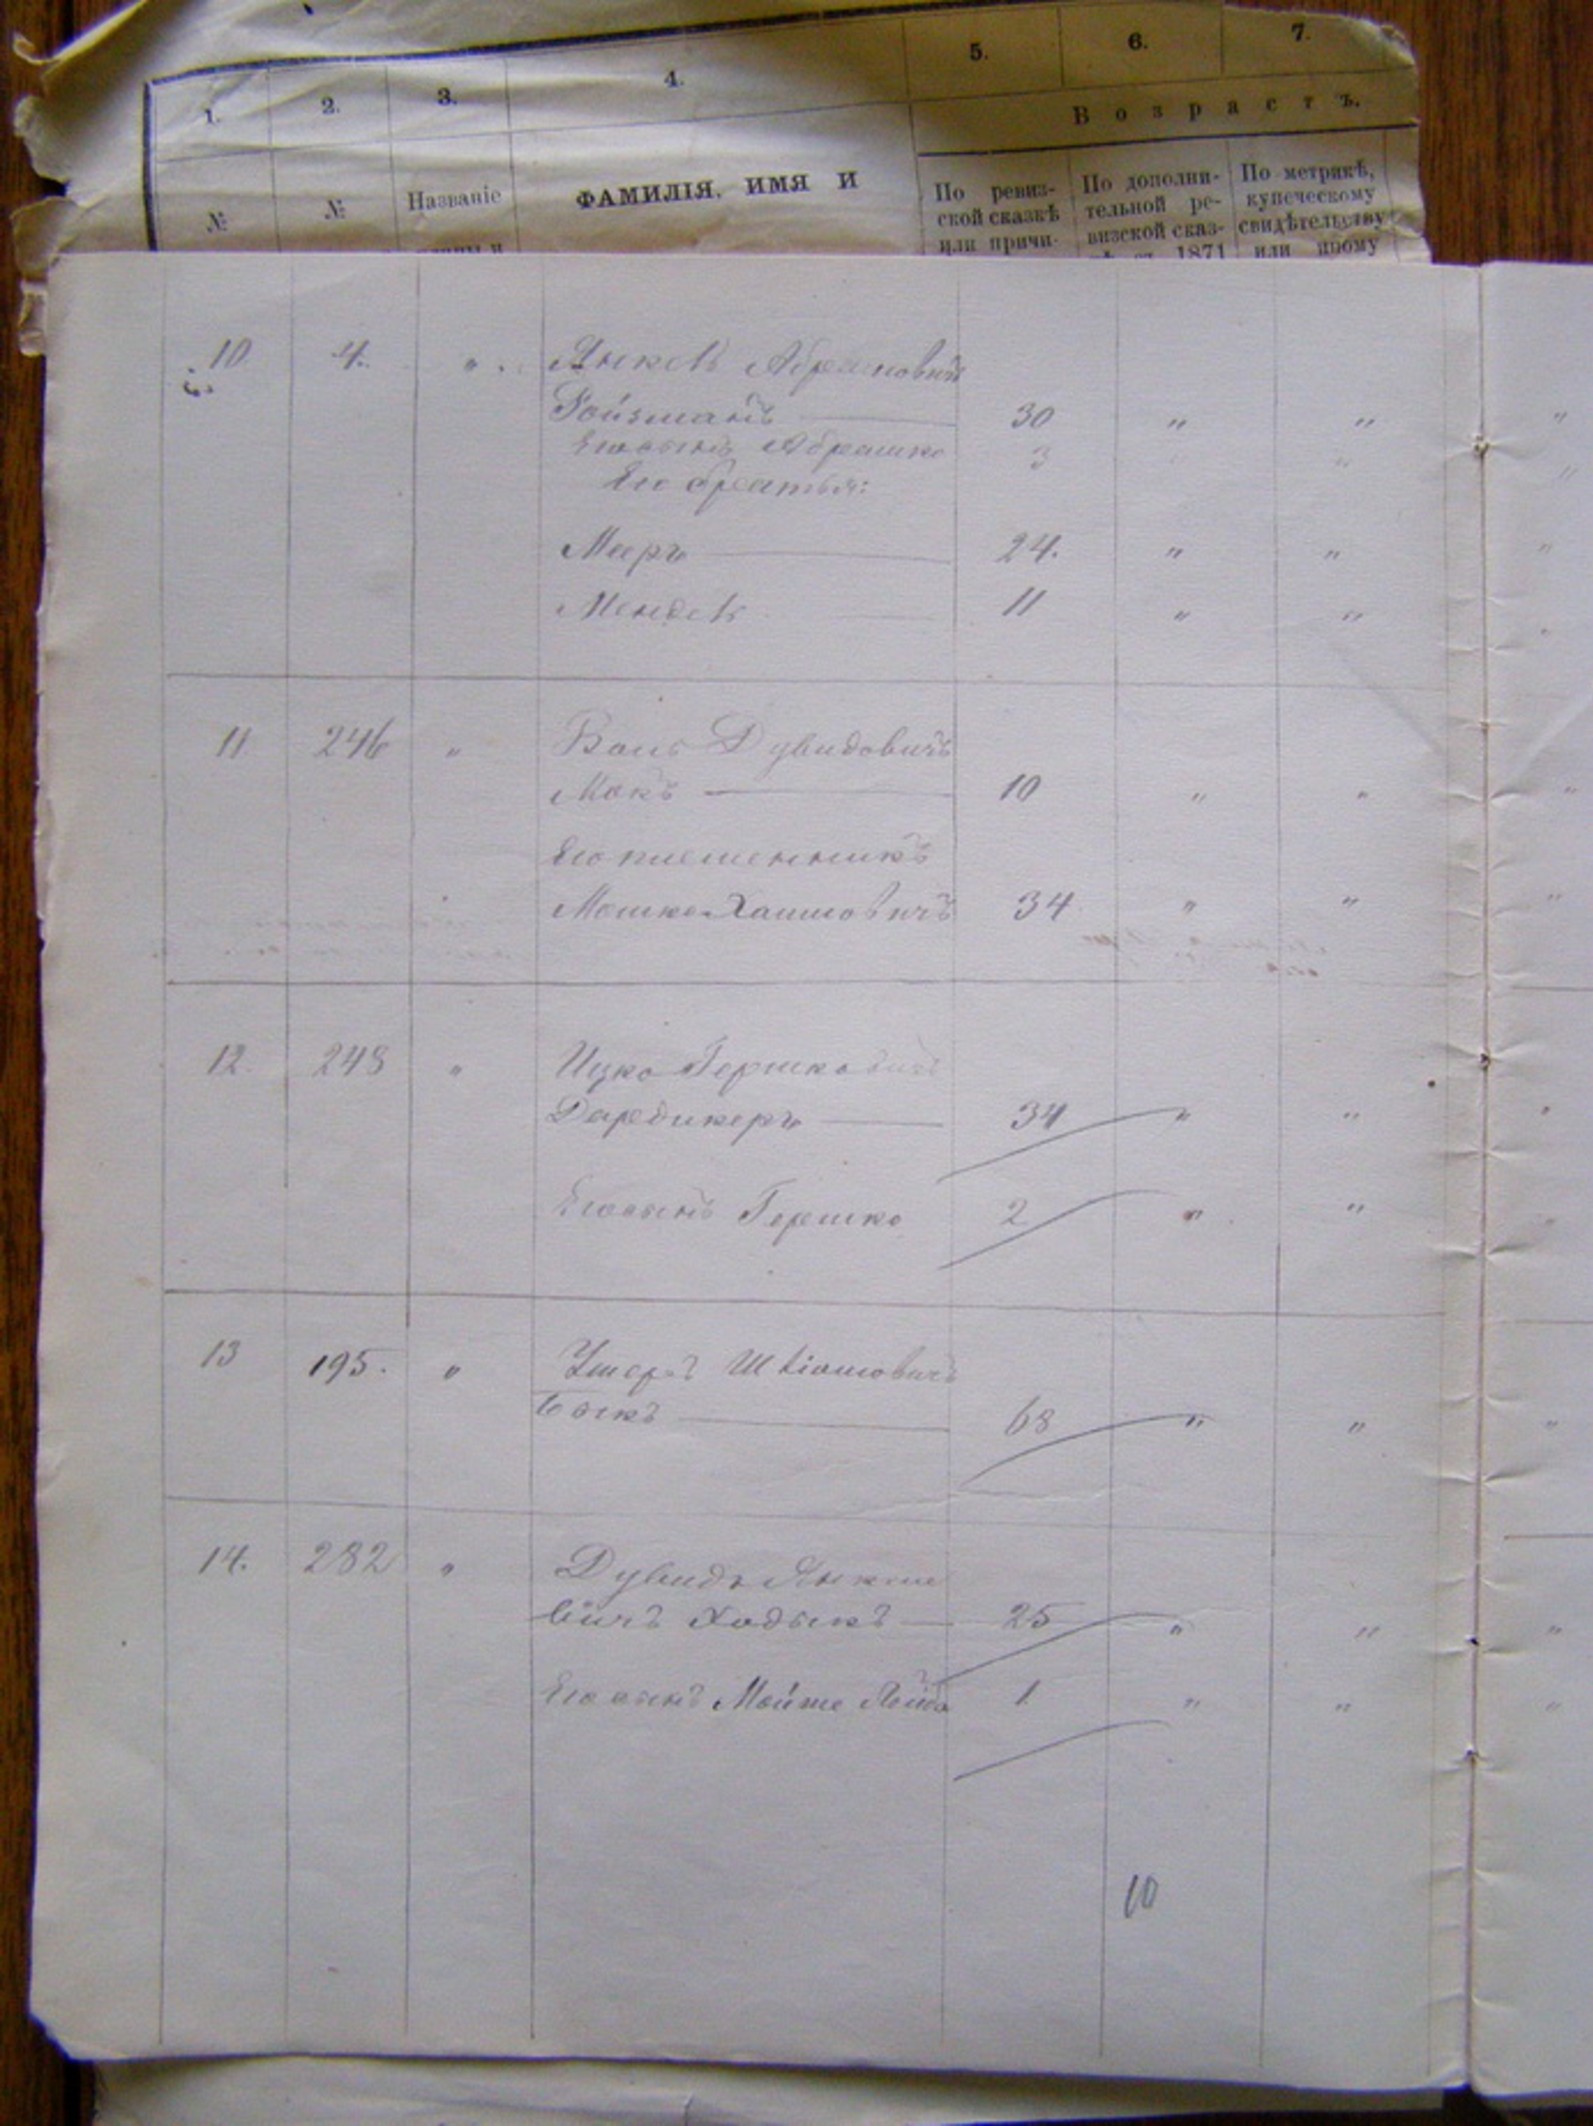 1. 2. 3. 4. 5. 6. 7.
Возрастъ.
№ № Названіе ФАМИЛІЯ, ИМЯ И По ревиз- По дополни- По метрикѣ,
ской сказкѣ тельной ре- купеческому
или причи- визской сказ- свидѣтельству
1871 или иному
10 4. " Янкель Абрамовичъ
Ройзманъ 30 " " "
Его сынъ Абрашко 3 " " "
Его братья:
Мееръ 24. " " "
Мендель 11 " "
11 246 " Дувидовичъ
Мокъ 10 " " "
Его племенникъ
Мошко Хаимовичъ 34 " " "
12. 248 " Ицко Гершковичъ
Дардикеръ 34 " "
Его сынъ Гершко 2 " "
13 195. " Ушеръ
68 " " "
14. 282 " Дувидъ Янкеле
вичъ Ходыкъ 25 " " "
Его сынъ Мойше 1 " " "
10